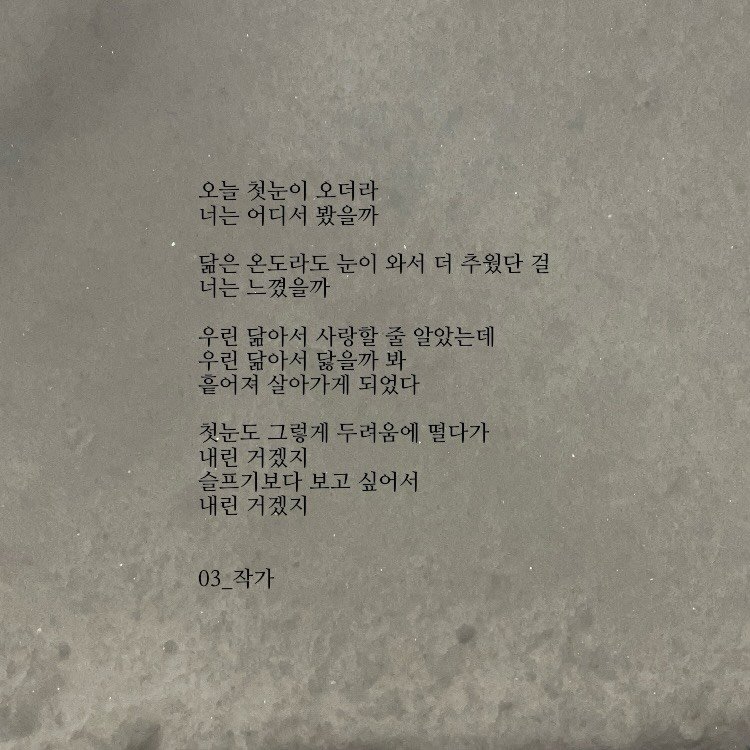 오늘 첫눈이 오더라
너는 어디서 봤을까
닮은 온도라도 눈이 와서 더 추웠단 걸
너는 느꼈을까
우린 닮아서 사랑할 줄 알았는데
우린 닮아서 닳을까 봐
흩어져 살아가게 되었다
첫눈도 그렇게 두려움에 떨다가
내린 거겠지
슬프기보다 보고 싶어서
내린 거겠지
03_작가